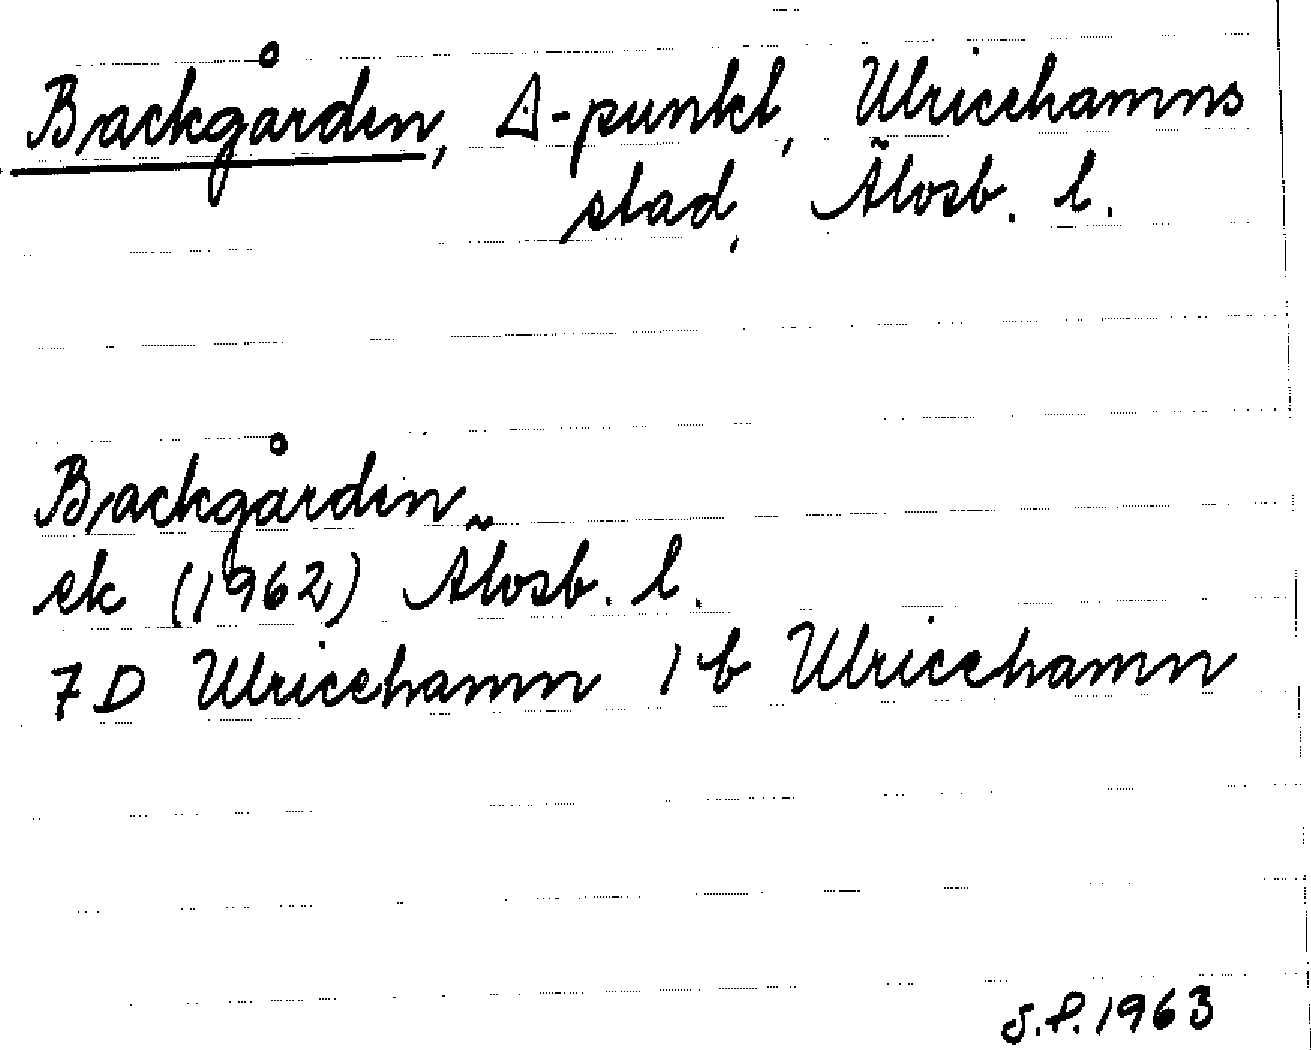 Backgården, Δ-punkt, Ulricehamns
stad, Älvsb. l.
Backgården
ek (1962) Älvsb. l.
7 D Ulricehamn 1 b Ulricehamn
S.P. 1963